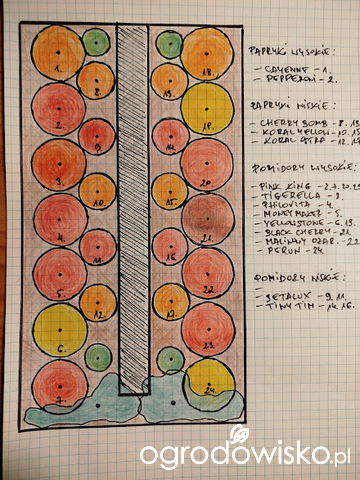 PAPRYKI WYSOKIE:
- CAYENNE - 1.
- PEPPERONI - 2.
PAPRYKI NISKIE:
- CHERRY BOMB - 8. 13.
- KORAL YELLOW - 10. 15
- KORAL OSTRA - 12. 17
POMIDORY WYSOKIE:
- PINK KING -
- TIGERELLA - 3.
- PHILOVITA - 4.
- MONEYMAKER - 5.
- YELLOWSTONE - 6. 19.
- BLACK CHERRY - 21.
- MALINOWY OŻAR. - 22
- PERUN - 24.
POMIDORY NISKIE:
-
- BETALUX - 9. 11.
- TINY TIM - 14. 16.
1.
8.
2.
9.
3.
10.
4.
11.
5.
12.
6.
7.
18.
13.
19.
14.
20.
15.
21.
16.
22.
17.
23.
24.
ogrodowisko.pl